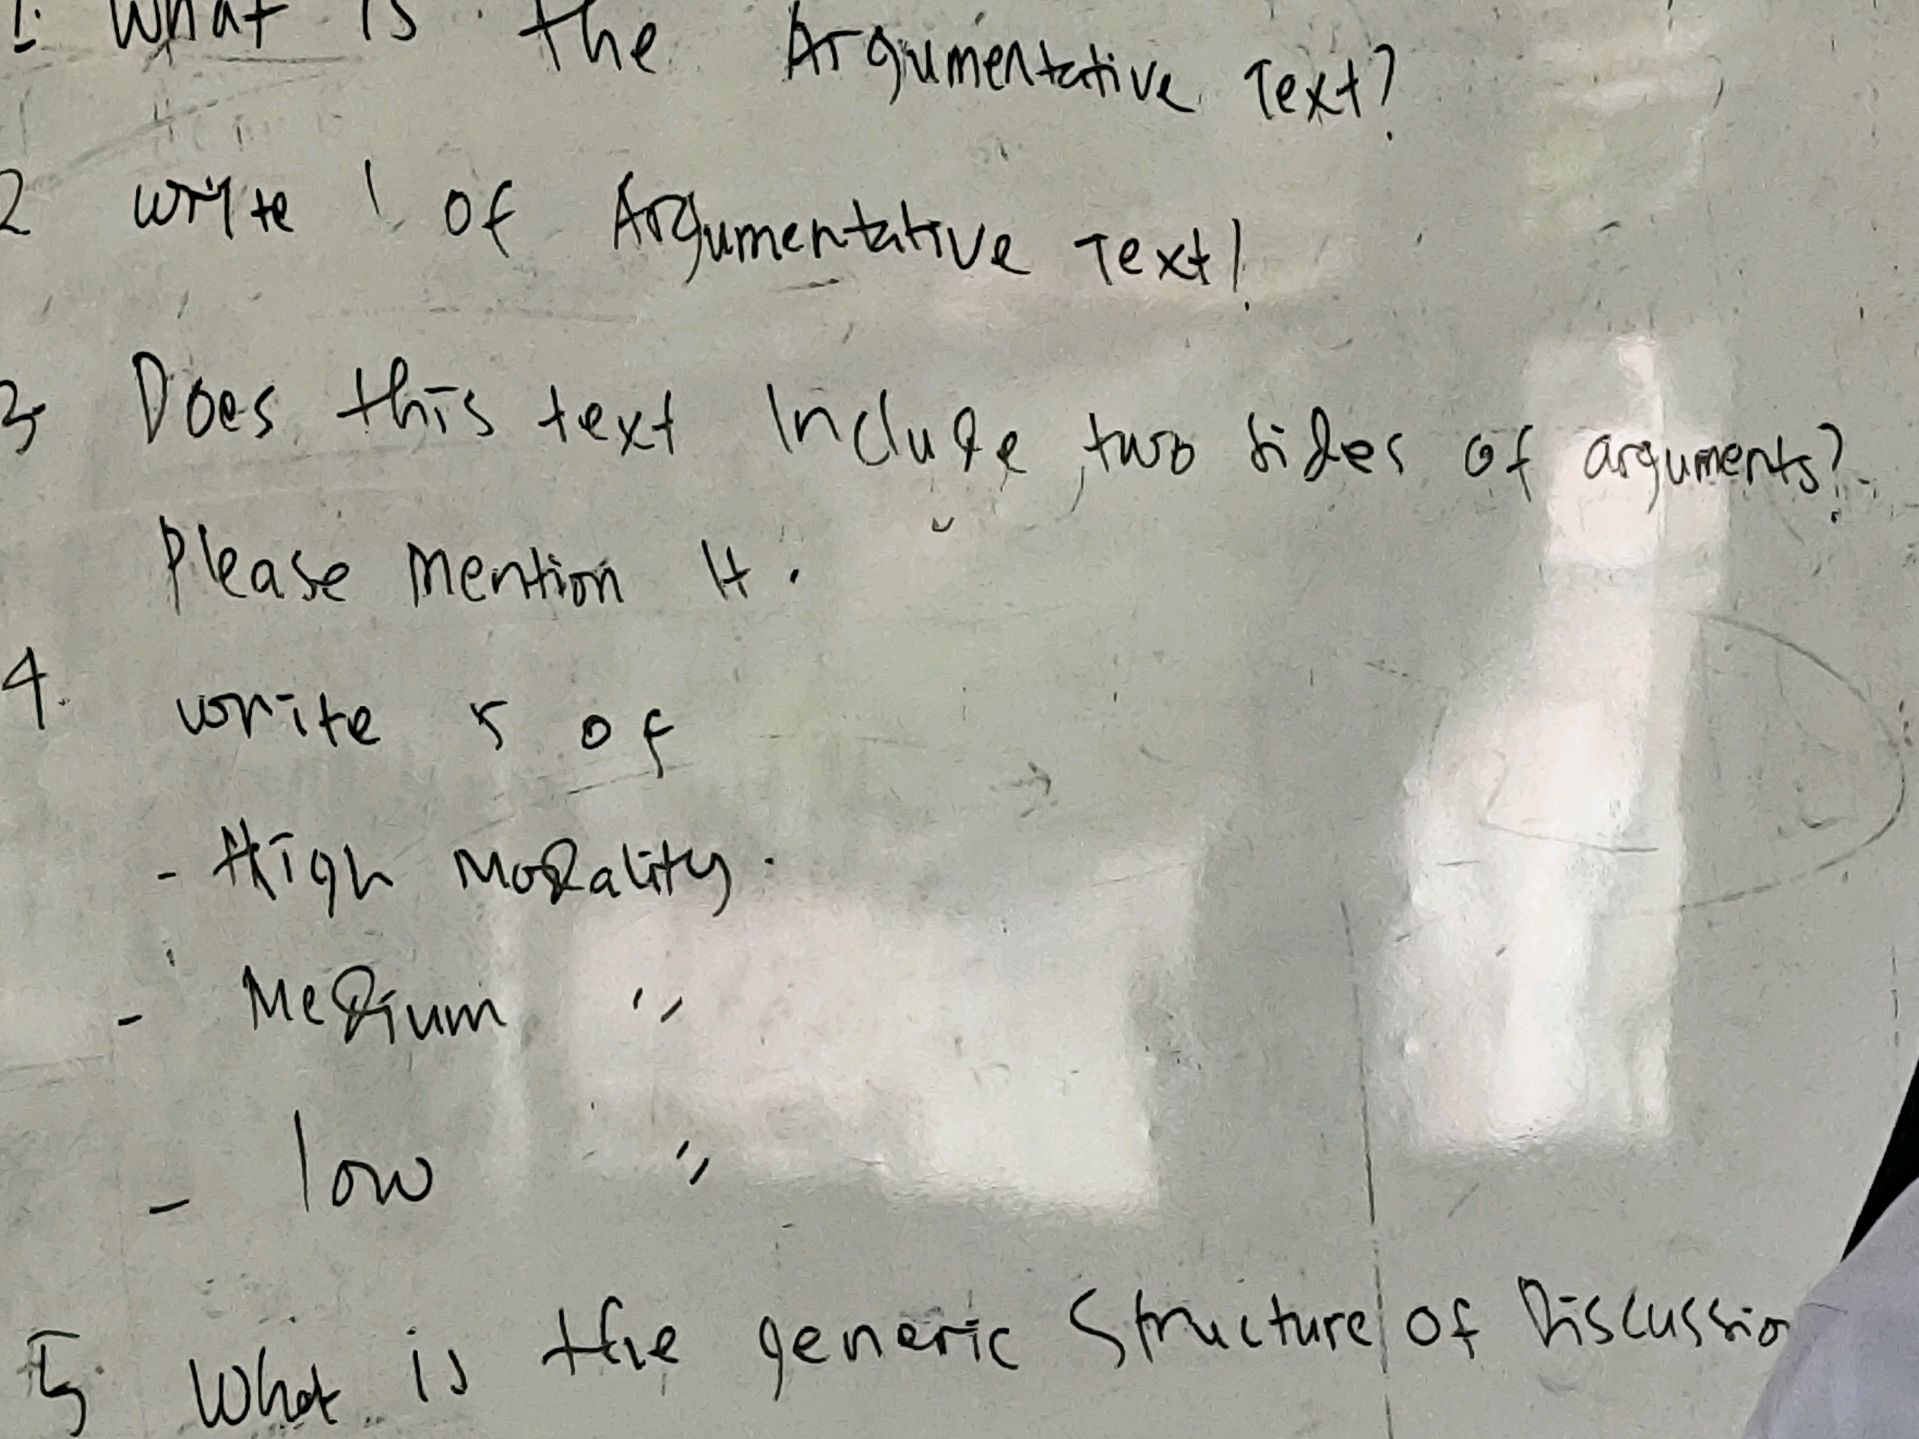 1. What is the Argumentative Text?
2 write 1 of Argumentative Text!
3 Does this text Include two sides of arguments?
Please mention It.
4. write 5 of
- High Modality.
- Medium "
- low "
5 What is the generic Structure of Discussio